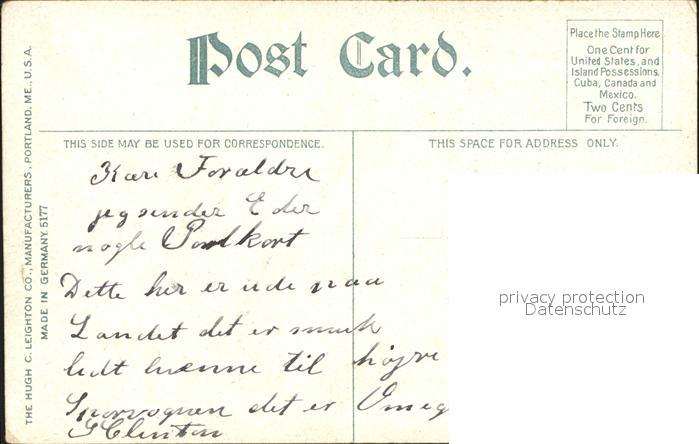 Post Card.
Place the Stamp Here
One Cent for
United States, and
Island Possessions,
Cuba, Canada and
Mexico.
Two Cents
For Foreign.
THIS SIDE MAY BE USED FOR CORRESPONDENCE.
THIS SPACE FOR ADDRESS ONLY.
THE HUGH C. LEIGHTON CO., MANUFACTURERS, PORTLAND, ME., U.S.A.
MADE IN GERMANY 5177
Kære Forældre
jeg sender Eder
nogle Postkort
Dette her er ude paa
Landet det er smuk
lidt henne til højre
Sporvognen det er Omeg
Clinton
privacy protection
Datenschutz